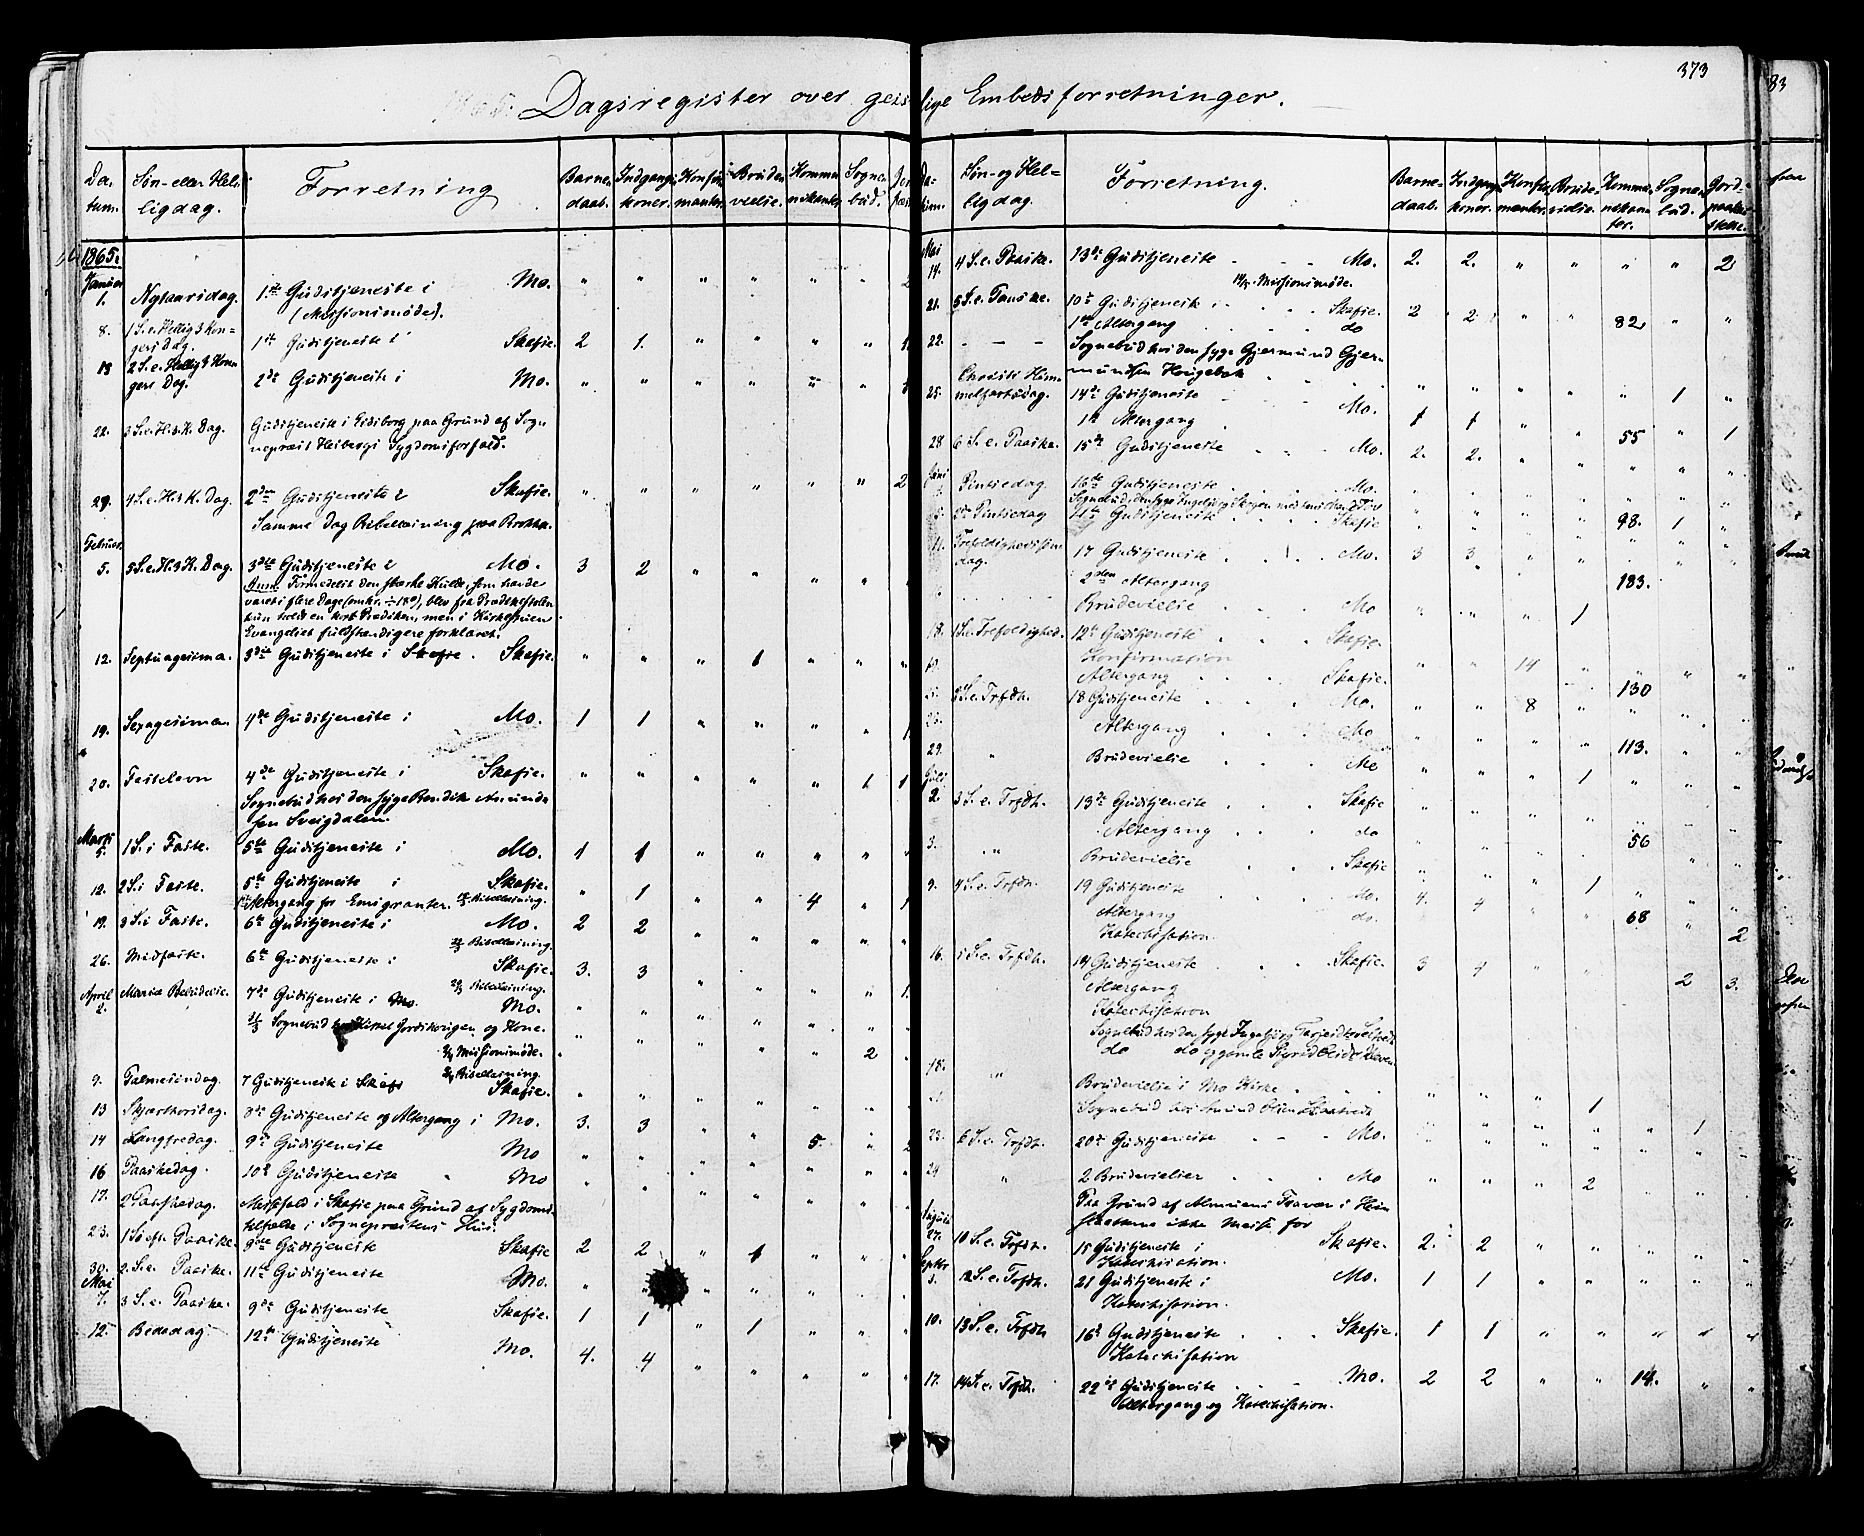 373
83
Dagsregister over geistlige Embedsforretninger.
Datum. Søn- eller Helligdag. Forretning Barnedaab. Indgangskoner. Konfirmanter. Brudevielse. Kommunikanter. Sognebud.
1865.
Januar
1. Nytaarsdag. 1ste Gudstjeneste i Mo. " " " " " "
(Missionsmøde).
8. 1 S. e. Hellig 3 Kongersdag. 1ste Gudstjeneste i Skafse. 2 1. " " " " 1.
2 S. e. Hellig 3 Kongers Dag. 2de Gudstjeneste i Mo. " " " " " "
22. 3 S. e. H. 3 K. Dag. Gudstjeneste i Eidsborg paa Grund af Sognepræst Heibergs Sygdomsforfald.
29. 4 S. e. H. 3 K. Dag. 2den Gudstjeneste i Skafse. " " " " " " 2
Samme Dag Bibellæsning paa
Februar.
5. 5 S. e. H. 3 K. Dag. 3die Gudstjeneste i Mo. 3 2 " " " " "
Anm. Formedelst den stærke Kulde, som havde
varet i flere Dage (omkr. ÷ 18°), blev fra Prædikestolen
kun holdt en kort Prædiken, men i
Evangeliet fuldstændigere forklaret.
12. Septuagesima. 3die Gudstjeneste i Skafse. Skafse. " " " 1 " " "
19. Sexagesima. 4de Gudstjeneste i Mo. 1 1 " " " " 1.
20. Fastelavn 4de Gudstjeneste i Skafse. " " " " " 1 1
Sognebud hos den syge Bendik Amundsen Sveigdalen.
Marts
5. 1 S. i Faste. 5te Gudstjeneste i Mo. 1 1 " " " " "
12. 2 S. i Faste. 5te Gudstjeneste i Skafse. " 1 " " 4 " 1
Altergang for Emigranter. Bibellæsning.
19. 3 S. i Faste. 6te Gudstjeneste i Mo. 2 2 " " " " "
Bibellæsning.
26. Midfaste. 6te Gudstjeneste i Skafse. 3. 3 " " " " 1.
Bibellæsning.
April
2. Maria Bebudelse. 7de Gudstjeneste i Mo. Mo. " " " " " " "
Sognebud og Kone. 2
Missionsmøde.
Bibellæsning.
9. Palmesøndag. 7 Gudstjeneste i Skafse Skafse. " " " " " " "
13 Skjærthorsdag. 8de Gudstjeneste og Altergang i Mo. 3. 3 " " 5. " 2
14 Langfredag. 9de Gudstjeneste Mo " " " " " " "
16 Paaskedag. 10de Gudstjeneste " Mo " " " " " " "
17. 2 Paaskedag. Messefald i Skafse paa Grund af Sygdomstilfælde i Sognepræstens Hus.
23. 1 S. eft. Paaske. Gudstjeneste Skafse 2 2 " 1 " " "
30. 2. S. e. Paaske. 11te Gudstjeneste Mo. " " " " " "
Mai
7. 3 S. e. Paaske. 9de Gudstjeneste Skafse. 1 1 " 1 " " "
12. Bededag. 12te Gudstjeneste Mo. 4. 4 " " " " "
Søn- og Helligdag. Forretning. Barnedaab. Indgangskoner. Konfirmanter. Brudevielse. Kommunikanter. Sognebud. Jordpaakastelse.
Mai
14. 4 S. e. Paaske. 13de Gudstjeneste Mo. 2. 2. " " " " 2
Missionsmøde.
21. 5 S. e. Paaske. 10de Gudstjeneste i Skafse. 2 2 " " 82 " "
1ste Altergang do
22. Sognebud hos den syge Gjermund Gjermundsen Haugebak 1
25. Christi Himmelfartsdag. 14de Gudstjeneste Mo. 1 1 " " 55 " 1
1ste Altergang
28 6 S. e. Paaske. 15de Gudstjeneste Mo. 2. 2. " " " " "
Juni
4. Pintsedag. 16de Gudstjeneste Mo. " " " " " " "
5. 2de Pintsedag 11te Gudstjeneste Skafse " " " " 98. 1 "
11. Trefoldighedssøndag. 17 Gudstjeneste Mo. 3 3 " " 183. " "
2den Altergang
Brudevielse Mo " " " 1
18. 1 S. e. Trefoldighed. 12te Gudstjeneste Skafse.
Konfirmation " " 14 " " "
Altergang Skafse. 130
25. 2 S. e. Trfdh. 18 Gudstjeneste Mo. " " 8 " " "
Altergang Mo 113.
29. " Brudevielse Mo " " " 1 " "
Juli
2. 3 S. e. Trfdh. 13de Gudstjeneste Skafse " " " " " "
Altergang do 56
3. " Brudevielse Skafse " " " 1 "
9. 4 S. e. Trfdh. 19 Gudstjeneste Mo. 4. 4 " " 68 " 2
Altergang do.
Katechisation.
16. S. e. Trfdh. 14 Gudstjeneste Skafse. 3 4 " " 2 3.
Altergang
Katechisation
Sognebud hos den syge Ingebjørg
do do
18. " Brudevielse i Mo Kirke " " " 1
Sognebud hos 1
23. 6 S. e. Trfdh. 20de Gudstjeneste Mo. " " " " " "
24 " 2 Brudevielser Mo " " " 2 " "
Paa Grund af Almuens Fravær i
ikke Messe for
August
27. 10 S. e. Trfdh. 15 Gudstjeneste i Skafse. 2. 2 " " " " "
Katechisation.
Septbr
3. 12 S. e. Trfdh. 21 Gudstjeneste i Mo. 1 1 " " " " "
Katechisation.
10. 13 S. e. Trfdh 16de Gudstjeneste Skafse. 1 1 " " " " "
Katechisation
17. 14 S. e. Trfdh. 22de Gudstjeneste Mo. 2 2 " " 14. " "
Altergang og Katechisation.